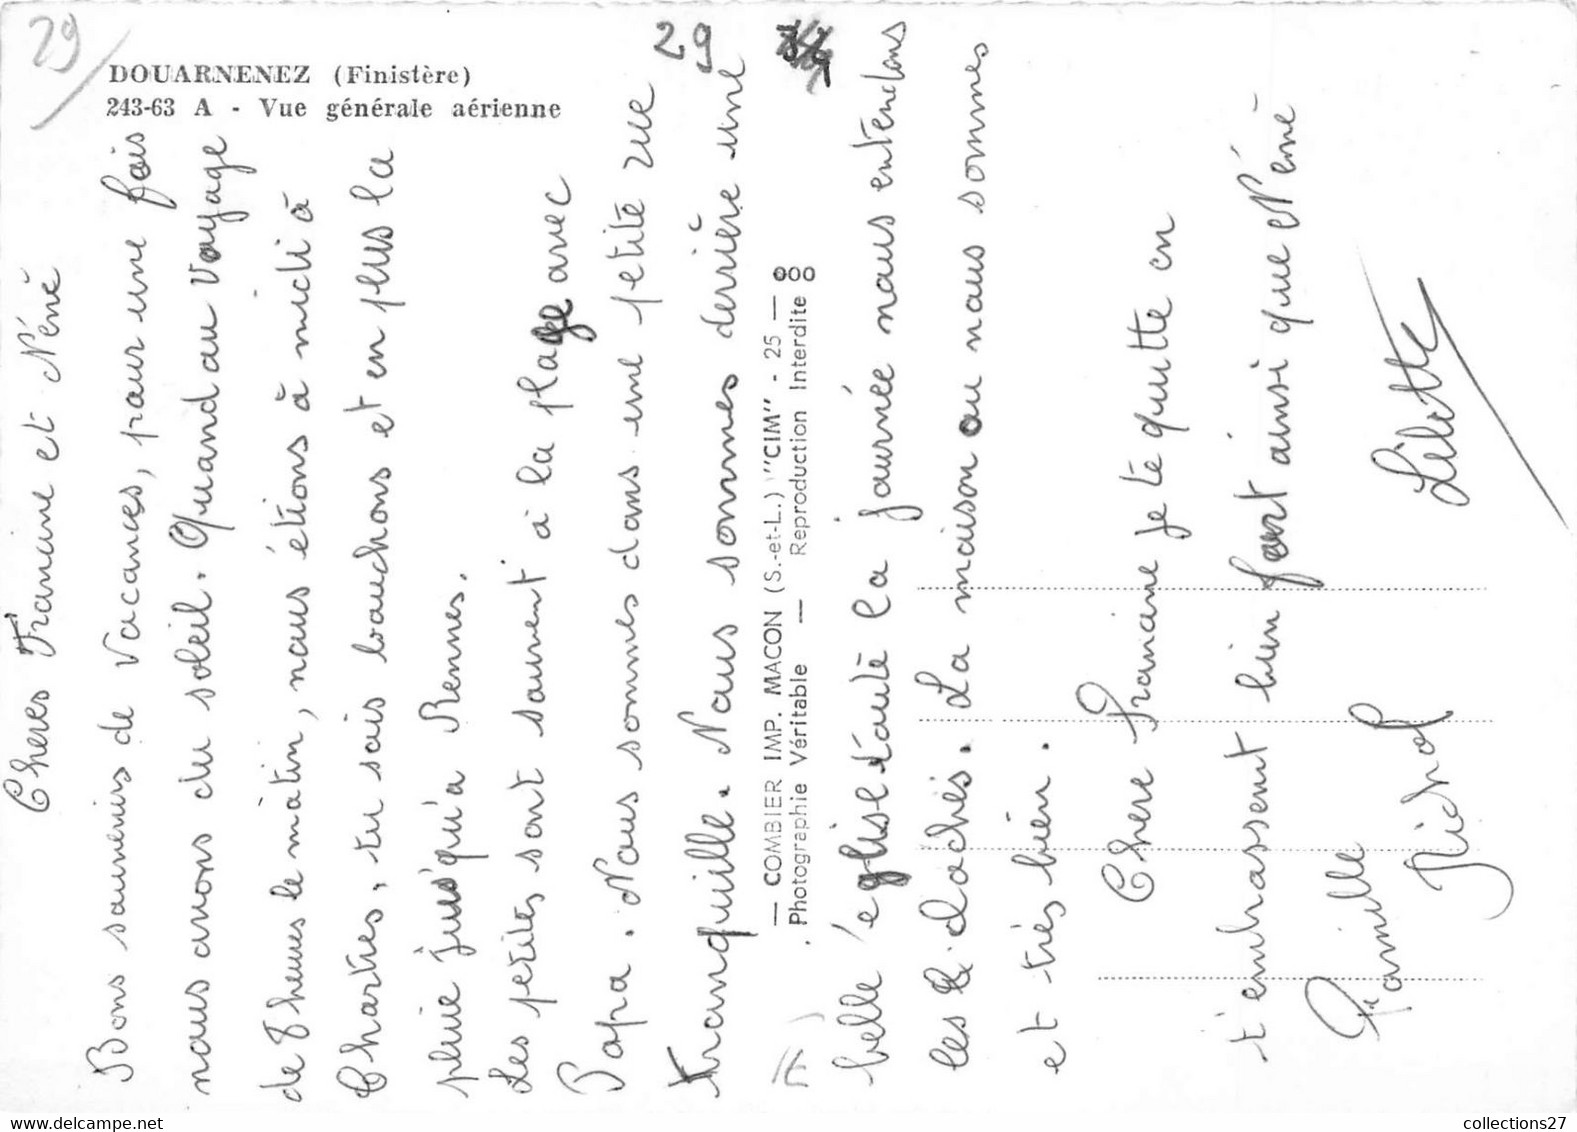 29
DOUARNENEZ (Finistère)
243-63 A - Vue générale aérienne
29
Cheres Francine et Néné
Bons souvenirs de vacances, pour une fois
nous avons du soleil. Quand au voyage
de 8 heures le matin, nous étions à midi à
Chartres, tu sais bouchons et en plus la
pluie jusqu'a Rennes.
Les petites sont souvent à la plage avec
Papa. Nous sommes dans une petite rue
tranquille. Nous sommes derrière une
belle église toute la journée nous entendons
les cloches. La maison ou nous sommes
et très bien.
Chere Francine je te quitte en
t'embrassent bien fort ainsi que Néné
Famille
Lilette
— COMBIER IMP. MACON (S.-et-L.) "CIM" - 25 —
Photographie Véritable — Reproduction Interdite 000
collections27